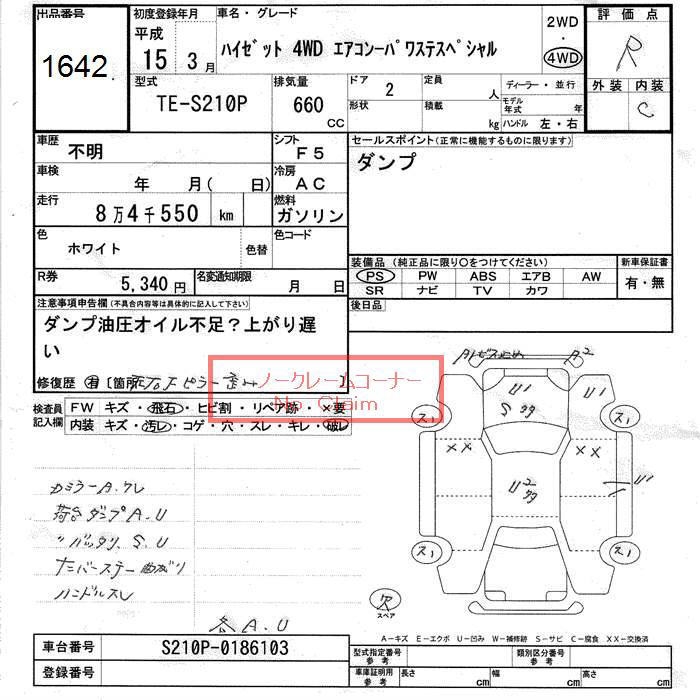 出品番号 初度登録年月 車名・グレード 2WD 評価点
1642 平成 15年 3月 ハイゼット 4WD エアコンーパワステスペシャル 4WD R
型式 排気量 ドア 定員 ディーラー・並行 外装 内装
TE-S210P 660 CC 2 人 モデル年式 年 C
形状 積載 kg ハンドル 左・右
車歴 不明 シフト F5 セールスポイント(正常に機能するものに限ります)
車検 年 月( 日) 冷房 AC ダンプ
走行 8万4千550 km 燃料 ガソリン
色 ホワイト 色替 色コード
装備品(純正品に限り○をつけてください) 新車保証書
R券 5,340円 名変通知期限 月 日 PS PW ABS エアB AW 有・無
SR ナビ TV カワ
注意事項申告欄(不具合内容等は具体的に記入して下さい) 後日品
ダンプ油圧オイル不足?上がり遅
い
修復歴 有 [箇所
ノークレームコーナー
No Claim
検査員記入欄 FW キズ・飛石・ヒビ割・リペア跡・×要
内装 キズ・汚レ・コゲ・穴・スレ・キレ・破レ
A2
U1
S
U2
U1
××
××
ス1
ス1
ス1
ス1
カミラーA.ワレ
荷台ダンプA.U
〃バッタリ S.U
ナンバーステー曲がり
ハンドルスレ
各A.U
欠
スペア
A－キズ E－エクボ U－凹み W－補修跡 S－サビ C－腐食 XX－交換済
車台番号 S210P-0186103 型式指定番号 参考 類別区分番号 参考
登録番号 車庫証明用 参考 長さ cm 幅 cm 高さ cm